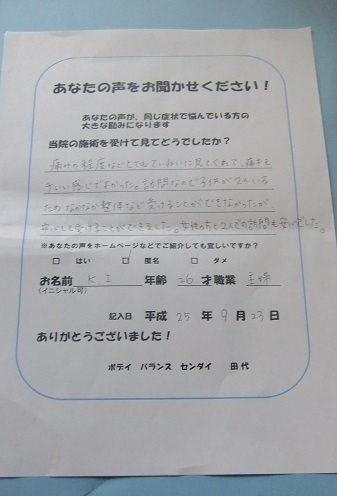 あなたの声をお聞かせください!
あなたの声が、同じ症状で悩んでいる方の
大きな励みになります
当院の施術を受けて見てどうでしたか?
痛みの程度などとてもていねいに見てくれて、痛さも
よかった。訪問なので子供が2人いる
ためなかなか整体など受けることができなかったが
安心して受けることができました。女性の方と2人での訪問も安心でした。
※あなたの声をホームページなどでご紹介しても宜しいですか?
□ はい □ 匿名 □ ダメ
お名前 K.I 年齢 26 才職業 主婦
(イニシャル可)
記入日 平成 25 年 9 月 23 日
ありがとうございました!
ボデイ バランス センダイ 田代